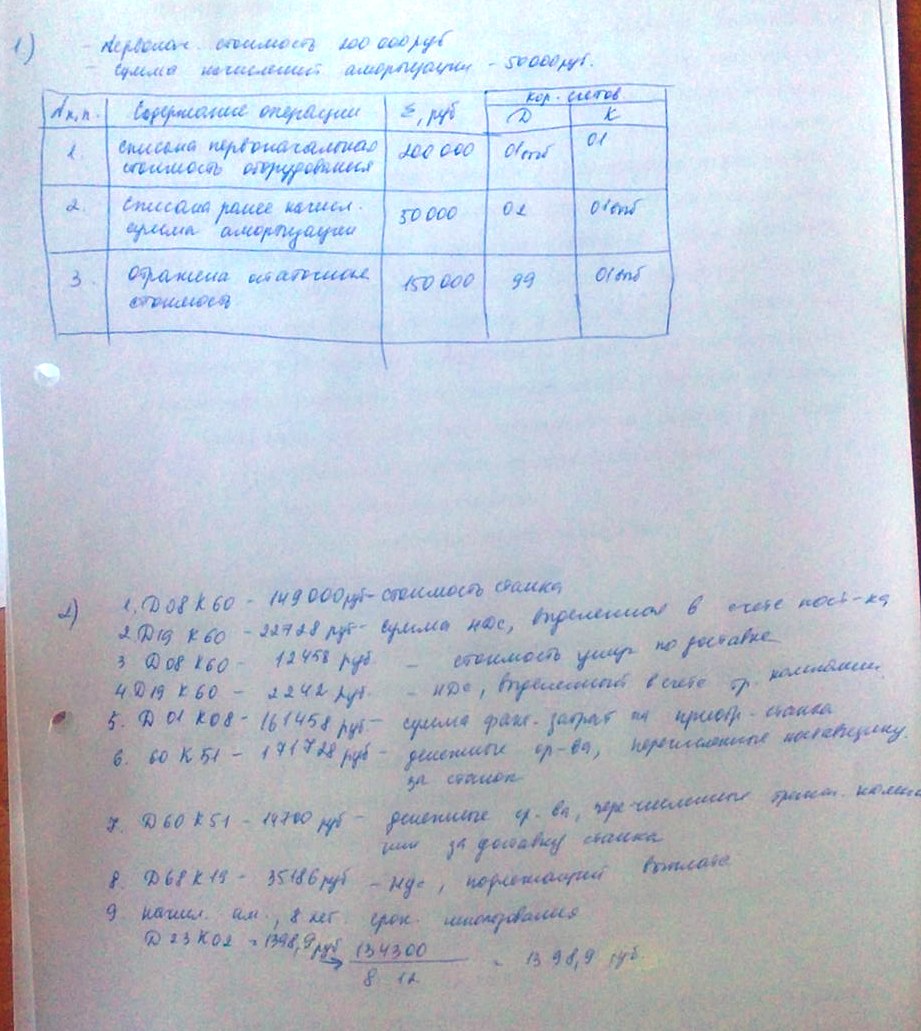 1)
- Первонач. стоимость 200 000 руб
- Сумма начислений амортизации - 50000 руб.
№ п.п. Содержание операции Σ, руб кор. счетов
Д К
1. списана первоначальная стоимость оборудования 200 000 01выб 01
2. Списана ранее начисл. сумма амортизации 50 000 02 01выб
3. Отражена остаточная стоимость 150 000 99 01выб
2)
1. Д 08 К 60 - 149000 руб - стоимость станка
2. Д19 К 60 - 22728 руб - сумма НДС, выделенная в счете пост-ка
3 Д 08 К 60 - 12458 руб. - стоимость услуг по доставке
4 Д 19 К 60 - 2242 руб. - НДС, выделенный в счете тр. компании
5. Д 01 К 08 - 161458 руб - сумма факт. затрат на приобр. станка
6. 60 К 51 - 171728 руб - денежные ср-ва, перечисленные поставщику
за станок
7. Д 60 К 51 - 14700 руб - денежные ср-ва, перечисленные трансп. компа
нии за доставку станка
8. Д 68 К 19 - 35186 руб - НДС, подлежащий выплате
9 начисл. ам., 8 лет. срок. использования
Д 23 К 02 = 1398,9 руб
134300
8 12
= 1398,9 руб.